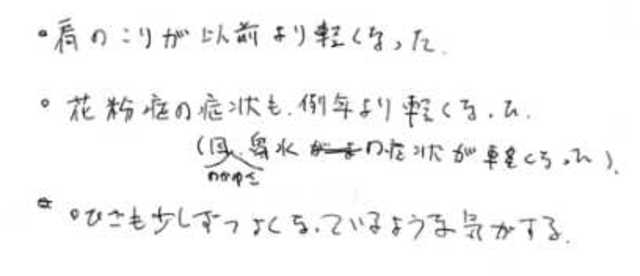 ・肩のこりが以前より軽くなった.
・花粉症の症状も、例年より軽くなった.
(目、鼻水の症状が軽くなった).
のかゆさ
・ひざも少しずつよくなっているような気がする.